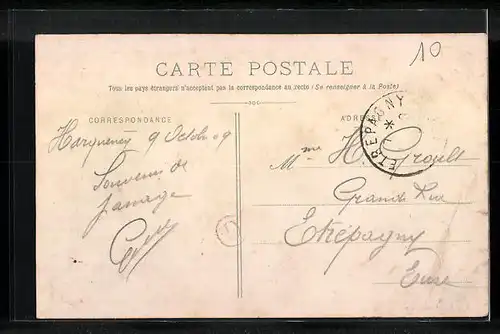 10
CARTE POSTALE
Tous les pays étrangers n'acceptent pas la correspondance au recto (Se renseigner à la Poste)
CORRESPONDANCE
ADRESSE
ETREPAGNY
Harquency 9 Octobr 09
Souvenir de
passage
Mme H. Groult
Grande Rue
Etrépagny
Eure